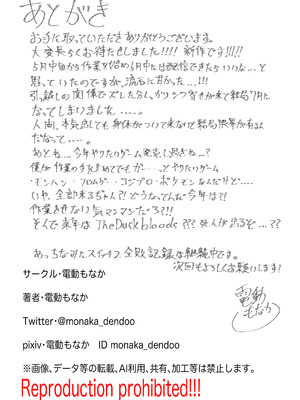 あとがき
お手に取っていただきありがとうございます。
大変長らくお待たせしました!!!! 新作です!!!!
5月中旬から作業を始め6月中には配信できたらいいな…と
思っていたのですが、流石に甘かった…!!!
引っ越しの関係でズレた分しわ寄せが来て結局7月に
なってしまいました……。
人間、本気出しても身体がついて来ないと結局限界が有るん
だなって……。
あとね…今年やりたいゲーム発売し過ぎね…?
僕が作業の手を止めてでもガーッとやりたいゲーム
モンハン・フロムゲー・コジプロ・ポケモンなんだけど…
いや、全部来るやん?!どうなってんだ今年は?!
作業させない気マンマンだろ?!!
そんで来年はTheDuskbloods???死人が出るぞ…??
あっちなみにスイッチ2全敗記録は継続中です。
次回もよろしくお願いします!
電動もなか
サークル・電動もなか
著者・電動もなか
Twitter・@monaka_dendoo
pixiv・電動もなか ID monaka_dendoo
※画像、データ等の転載、AI利用、共有、加工等は禁止します。
Reproduction prohibited!!!